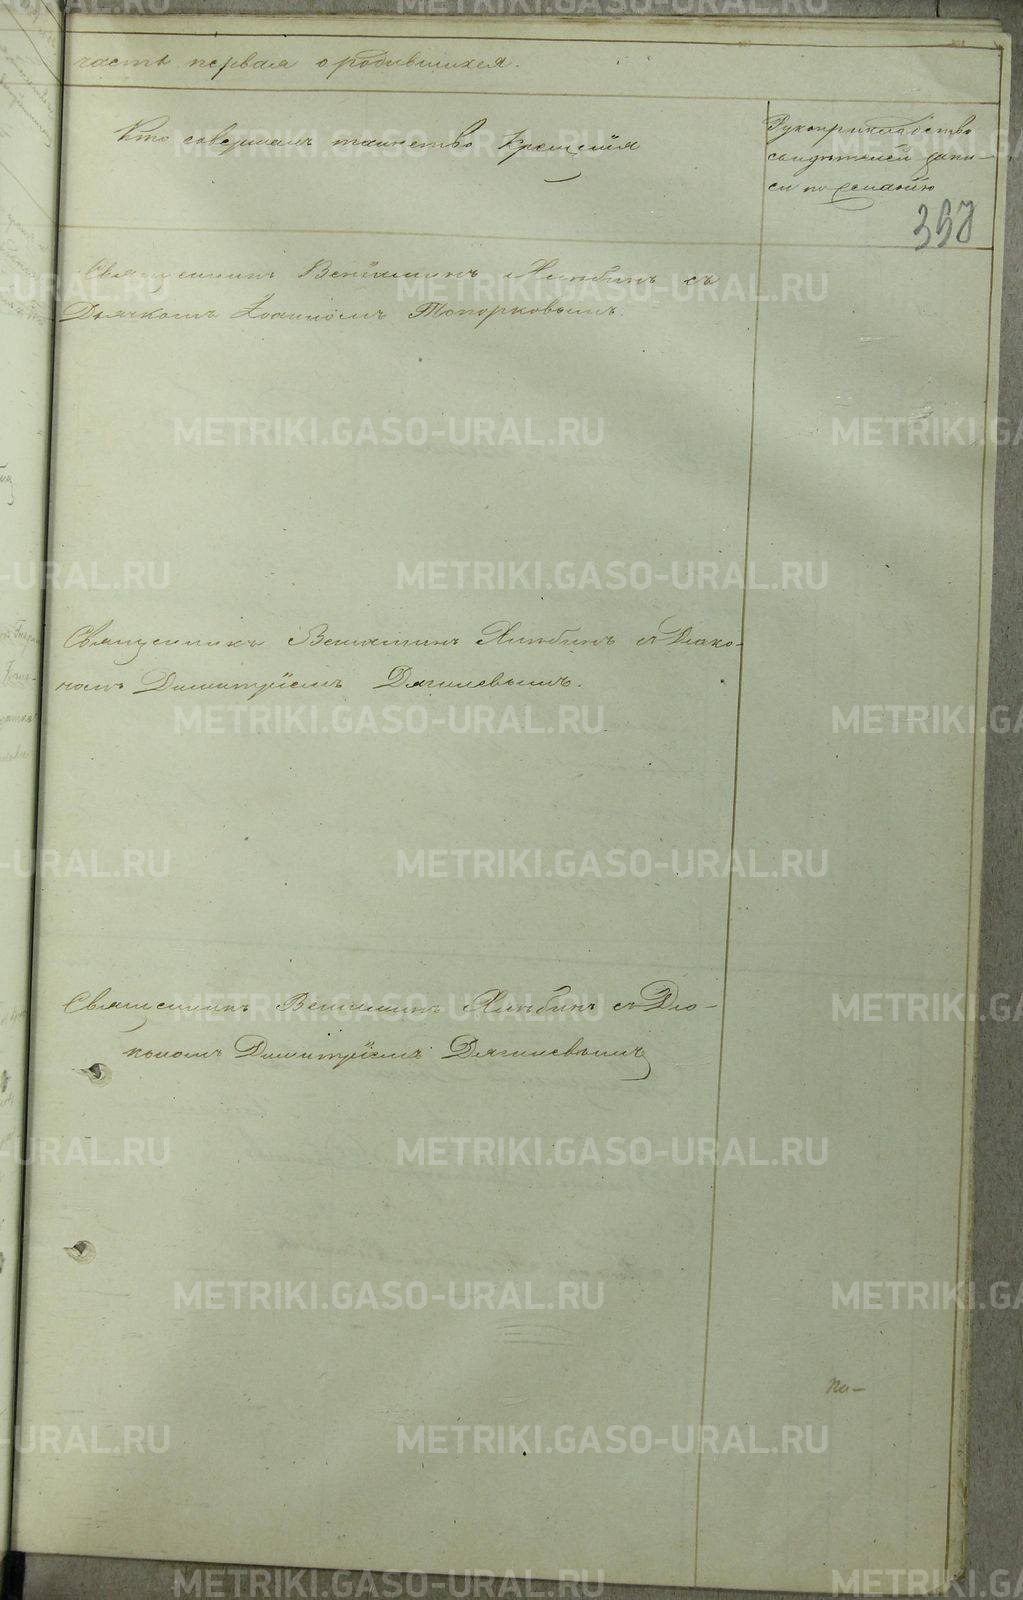 часть первая о родившихся.
Кто совершалъ таинство Крещенія
Рукоприкладство
свидѣтелей запи-
си по желанію
Священникъ Веніаминъ Хлыбинъ съ
Дьячкомъ Іоанномъ Топорковымъ.
Священникъ Веніаминъ Хлыбинъ съ Діако-
номъ Димитріемъ Дягилевымъ.
Священникъ Веніаминъ Хлыбинъ съ Діа-
кономъ Димитріемъ Дягилевымъ
На-
METRIKI.GASO-URAL.RU